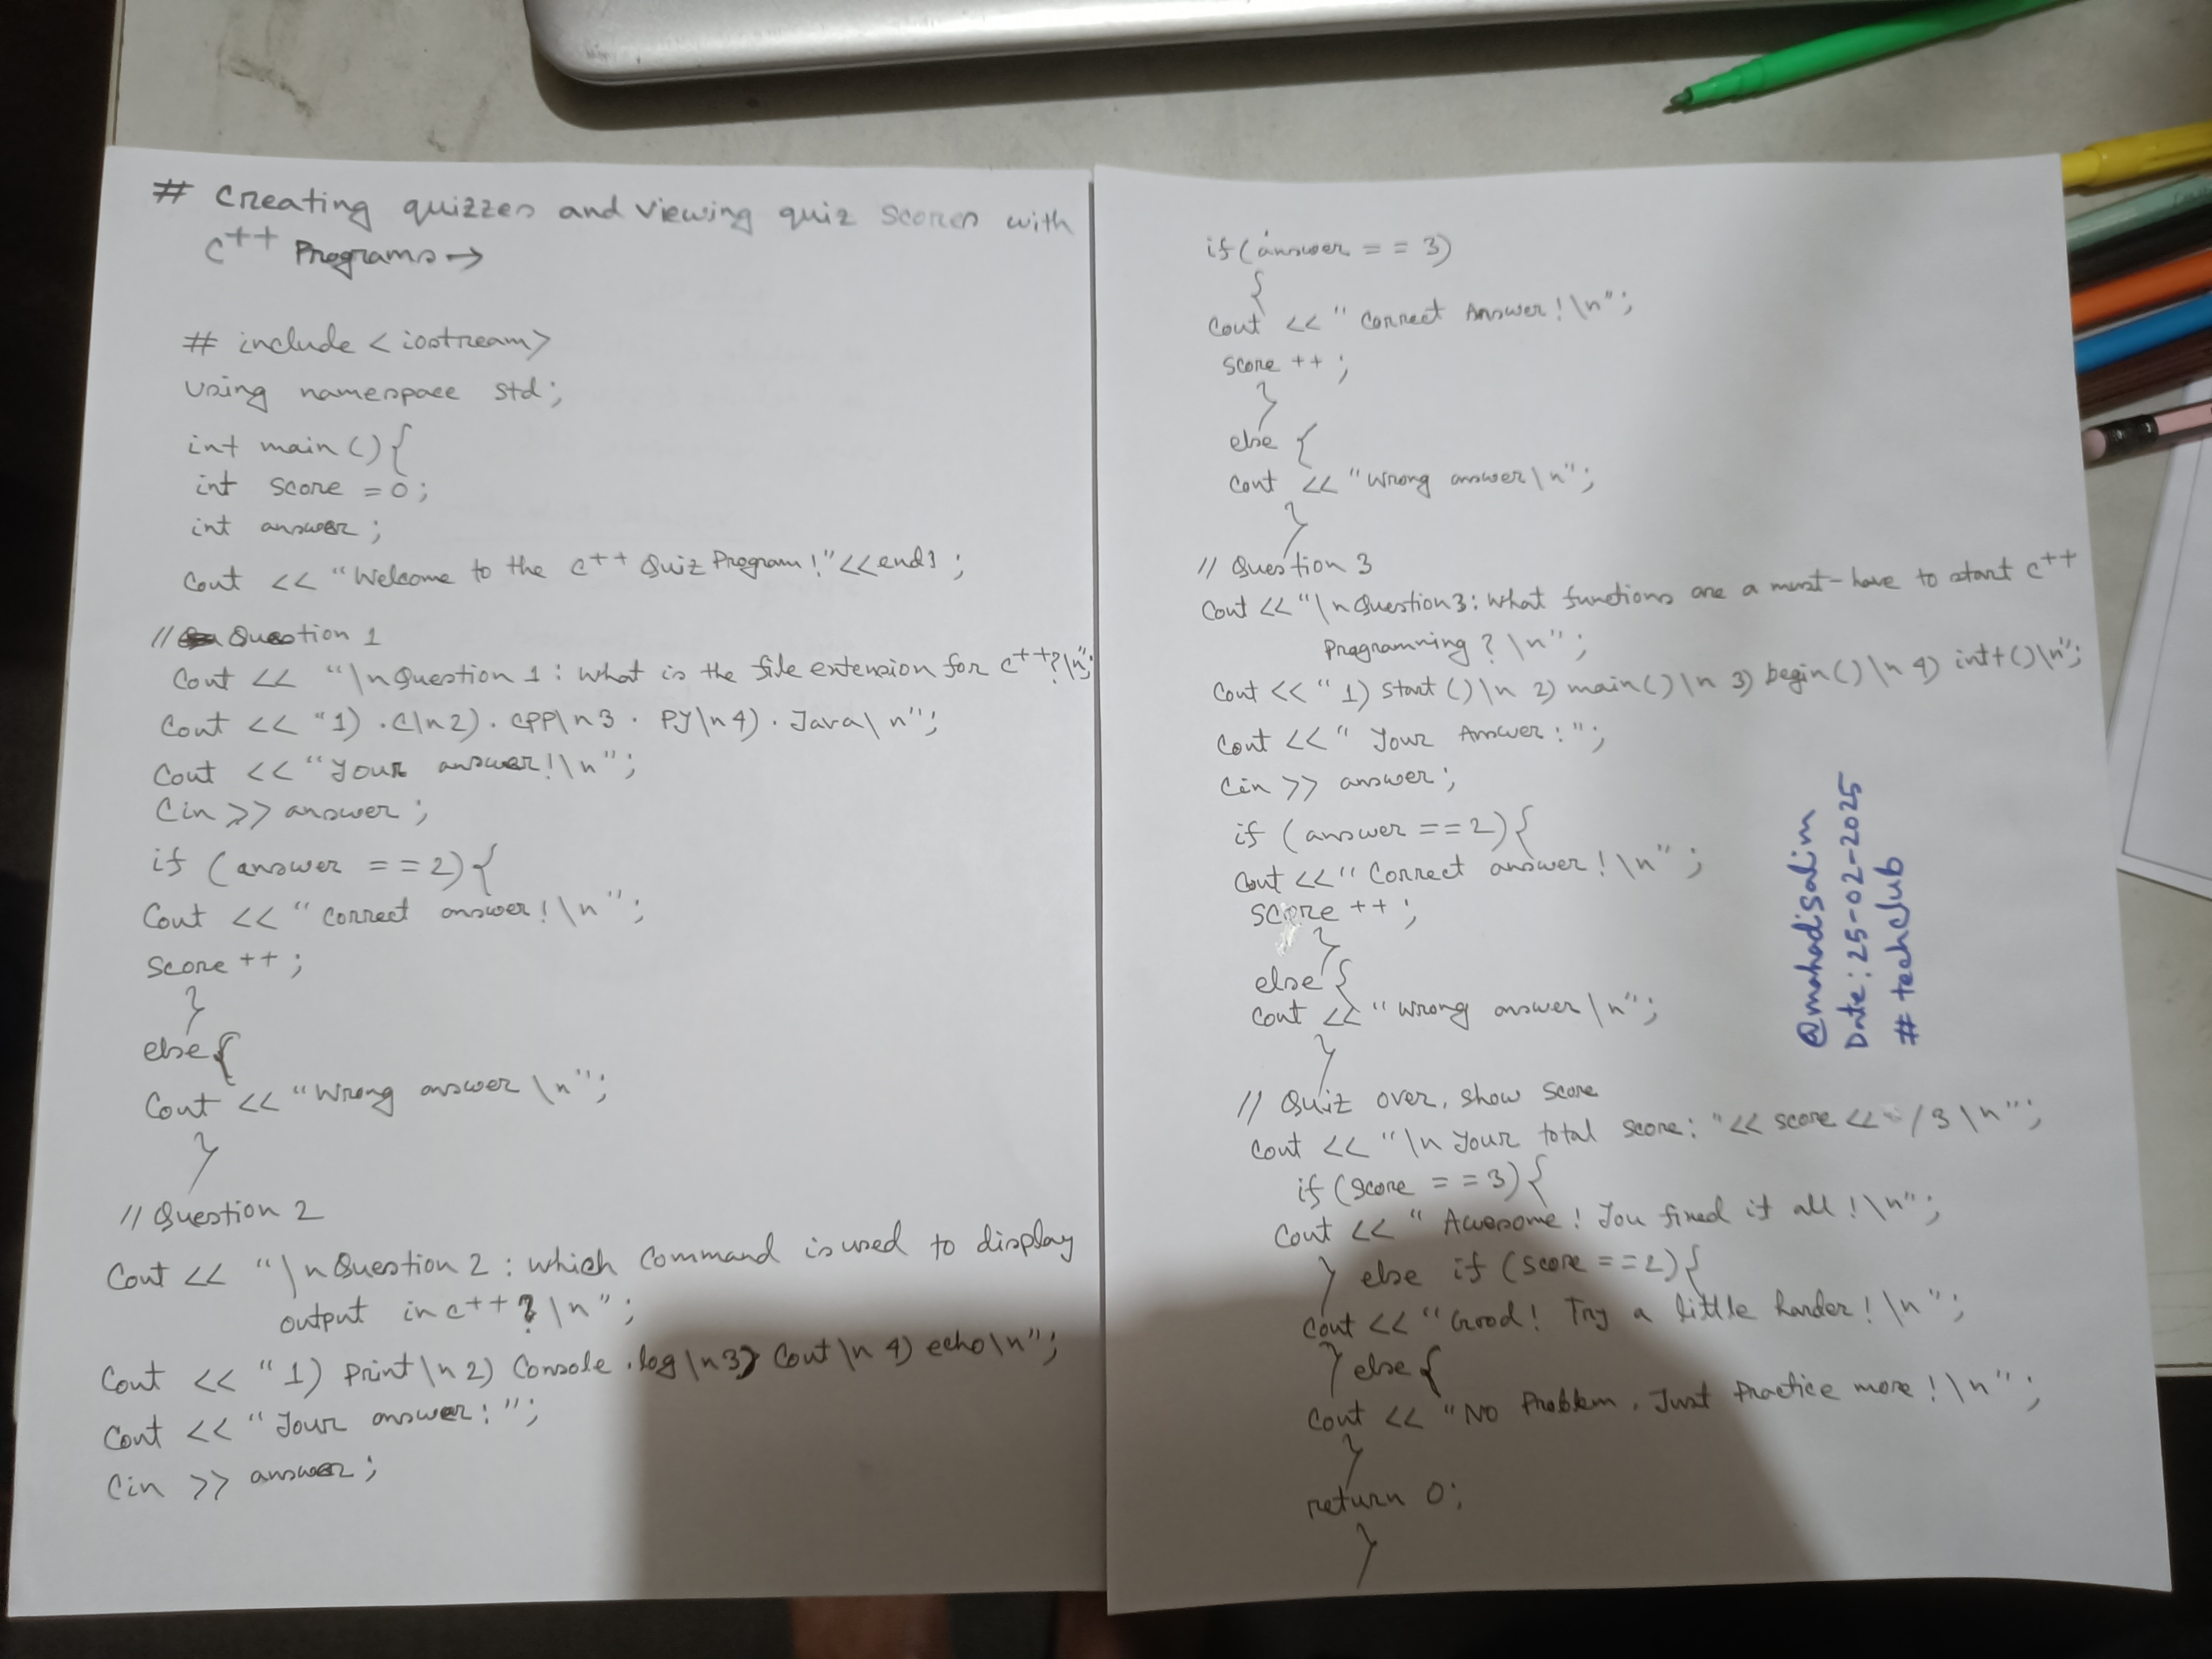 # Creating quizzes and viewing quiz scores with
C++ Programs →
# include <iostream>
using namespace std;
int main () {
int score = 0;
int answer;
Cout << "Welcome to the C++ Quiz Program!" << endl;
// Question 1
Cout << "\n Question 1 : What is the file extension for C++?\n";
Cout << "1) .C\n 2) . CPP\n 3 . PY\n 4) . Java\n";
Cout << "Your answer!\n";
Cin >> answer;
if (answer == 2) {
Cout << "Correct answer!\n";
Score ++ ;
}
else {
Cout << "Wrong answer \n";
}
// Question 2
Cout << "\n Question 2 : which Command is used to display
output in c++ ? \n";
Cout << "1) Print \n 2) Console .log \n 3) Cout \n 4) echo \n";
Cout << "Your answer: ";
Cin >> answer;
if (answer == 3)
{
Cout << " Correct Answer! \n";
Score ++ ;
}
else {
Cout << "Wrong answer \n";
}
// Question 3
Cout << "\n Question 3: What functions are a must-have to start C++
Programming ? \n";
Cout << " 1) Start () \n 2) main () \n 3) begin () \n 4) intt () \n";
Cout << " Your Answer : ";
Cin >> answer;
if (answer == 2) {
Cout << " Correct answer! \n" ;
Score ++ ;
}
else {
Cout << " Wrong answer \n";
}
// Quiz over, show score
Cout << "\n Your total score: " << score << " /3 \n";
if (Score == 3) {
Cout << " Awesome! You fixed it all! \n";
} else if (score == 2) {
Cout << "Good! Try a little harder! \n";
} else {
Cout << "No Problem, Just Practice more! \n";
}
return 0;
}
@mahadisalim
Date: 25-02-2025
# techclub